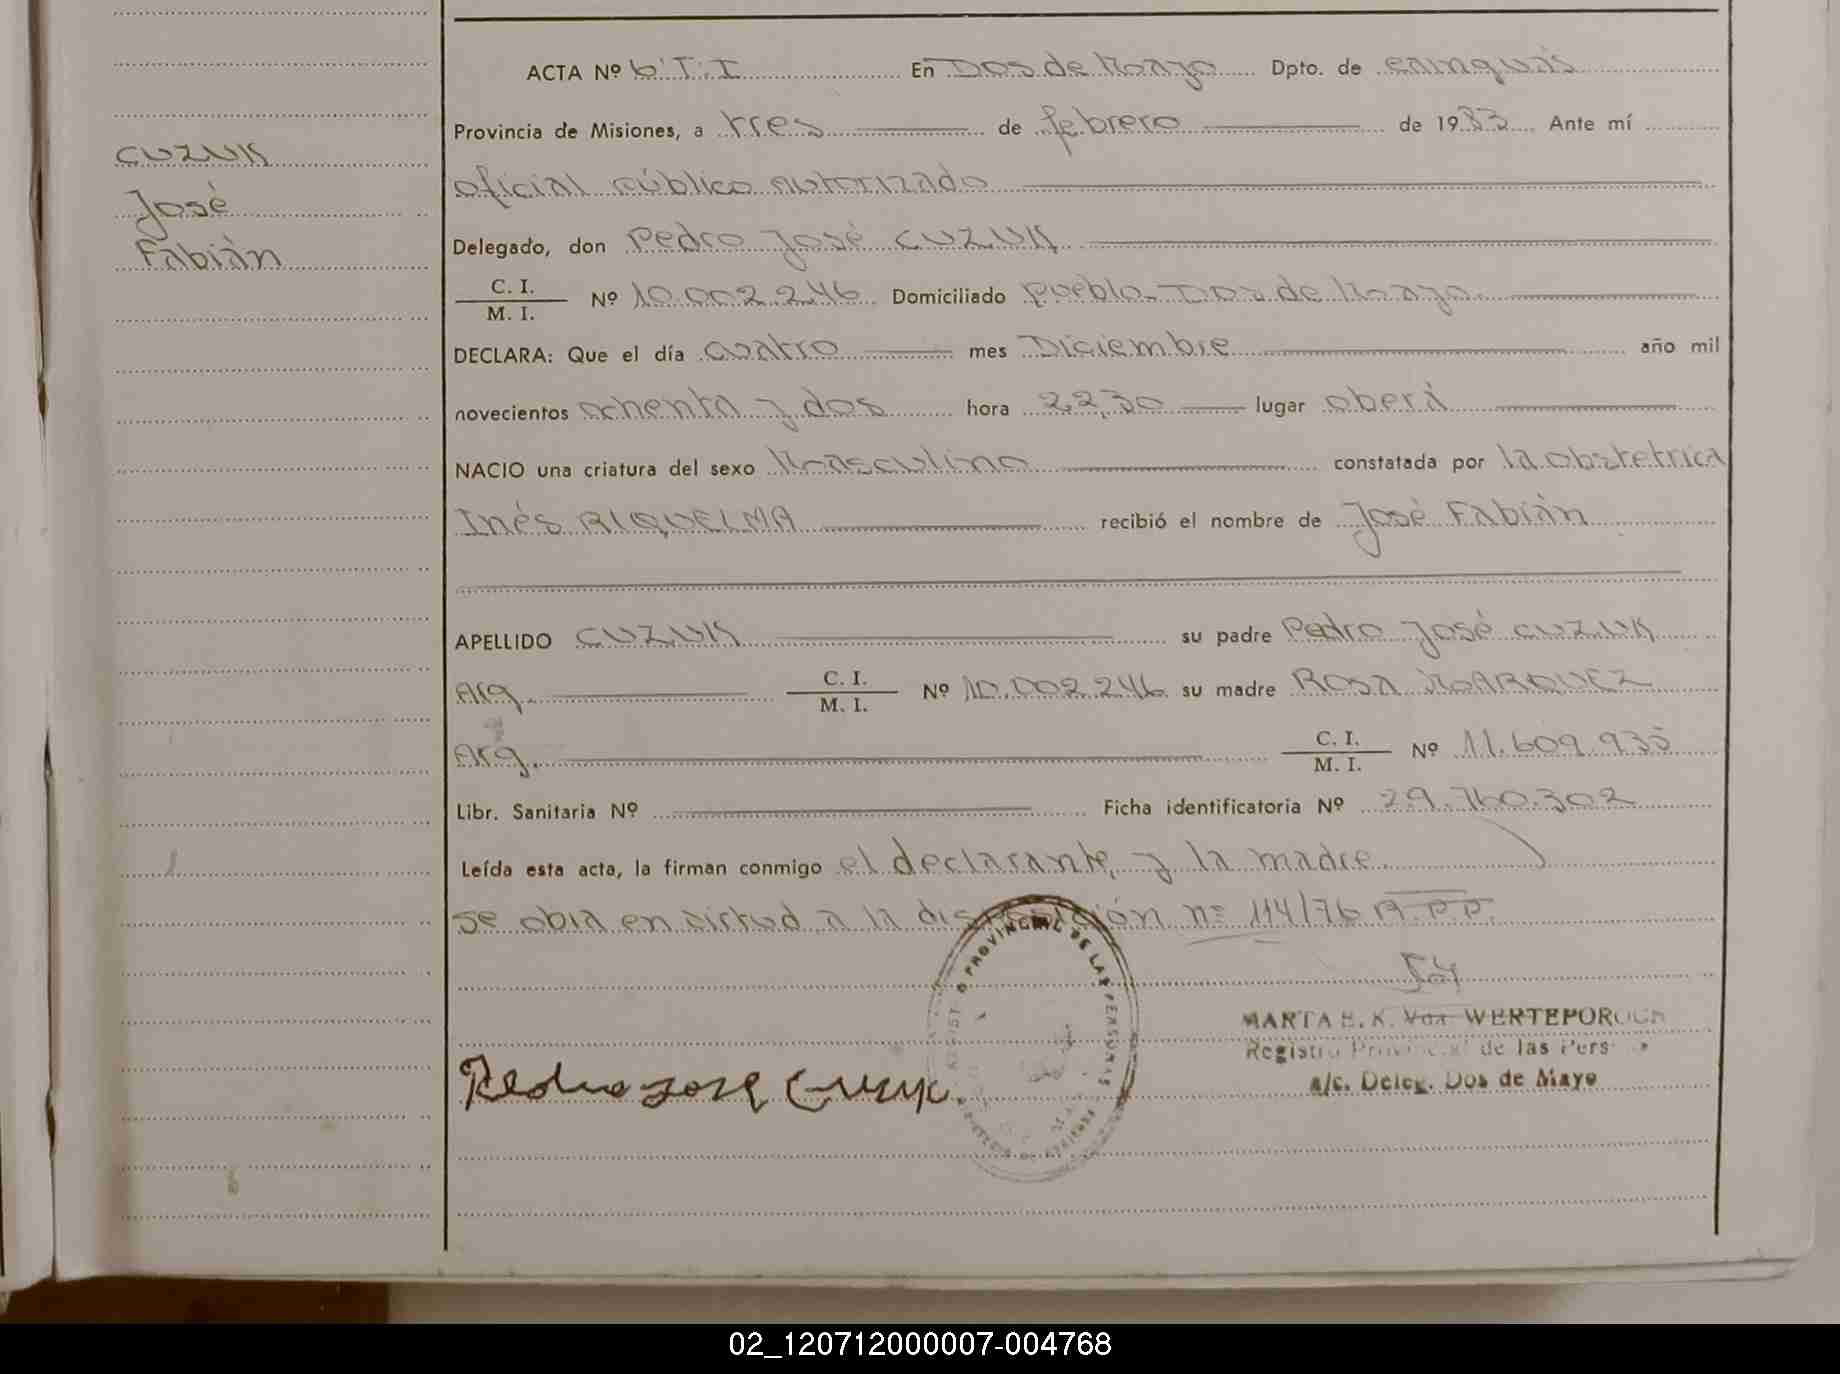 ACTA Nº 6 T. I En Dos de Mayo Dpto. de cainguás
Provincia de Misiones, a tres de febrero de 1983 Ante mí
CUZUK
José
Fabián
oficial público autorizado
Delegado, don Pedro José CUZUK
C. I.
M. I.
Nº 10.002.246 Domiciliado pueblo Dos de Mayo
DECLARA: Que el día cuatro mes Diciembre año mil
novecientos ochenta y dos hora 22,30 lugar oberá
NACIO una criatura del sexo Masculino constatada por la obstetrica
Inés RIQUELMA recibió el nombre de José Fabián
APELLIDO CUZUK su padre Pedro José CUZUK
Arg. C. I.
M. I. Nº 10.002.246 su madre ROSA MARQUEZ
Arg. C. I.
M. I. Nº 11.609.935
Libr. Sanitaria Nº Ficha identificatoria Nº 29.760.302
Leída esta acta, la firman conmigo el declarante, y la madre
se obia en virtud a la disposición nº 114/76 R.P.P.
REGIST O PROVINCIAL DE LAS PERSONAS
MARTA E. K. Von WERTEPOROCH
Registro Provincial de las Pers
a/c. Deleg. Dos de Mayo
Pedro Jose Cuzuk.
02_120712000007-004768